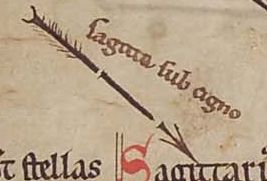 sagitta sub cigno
stellas Sagittari